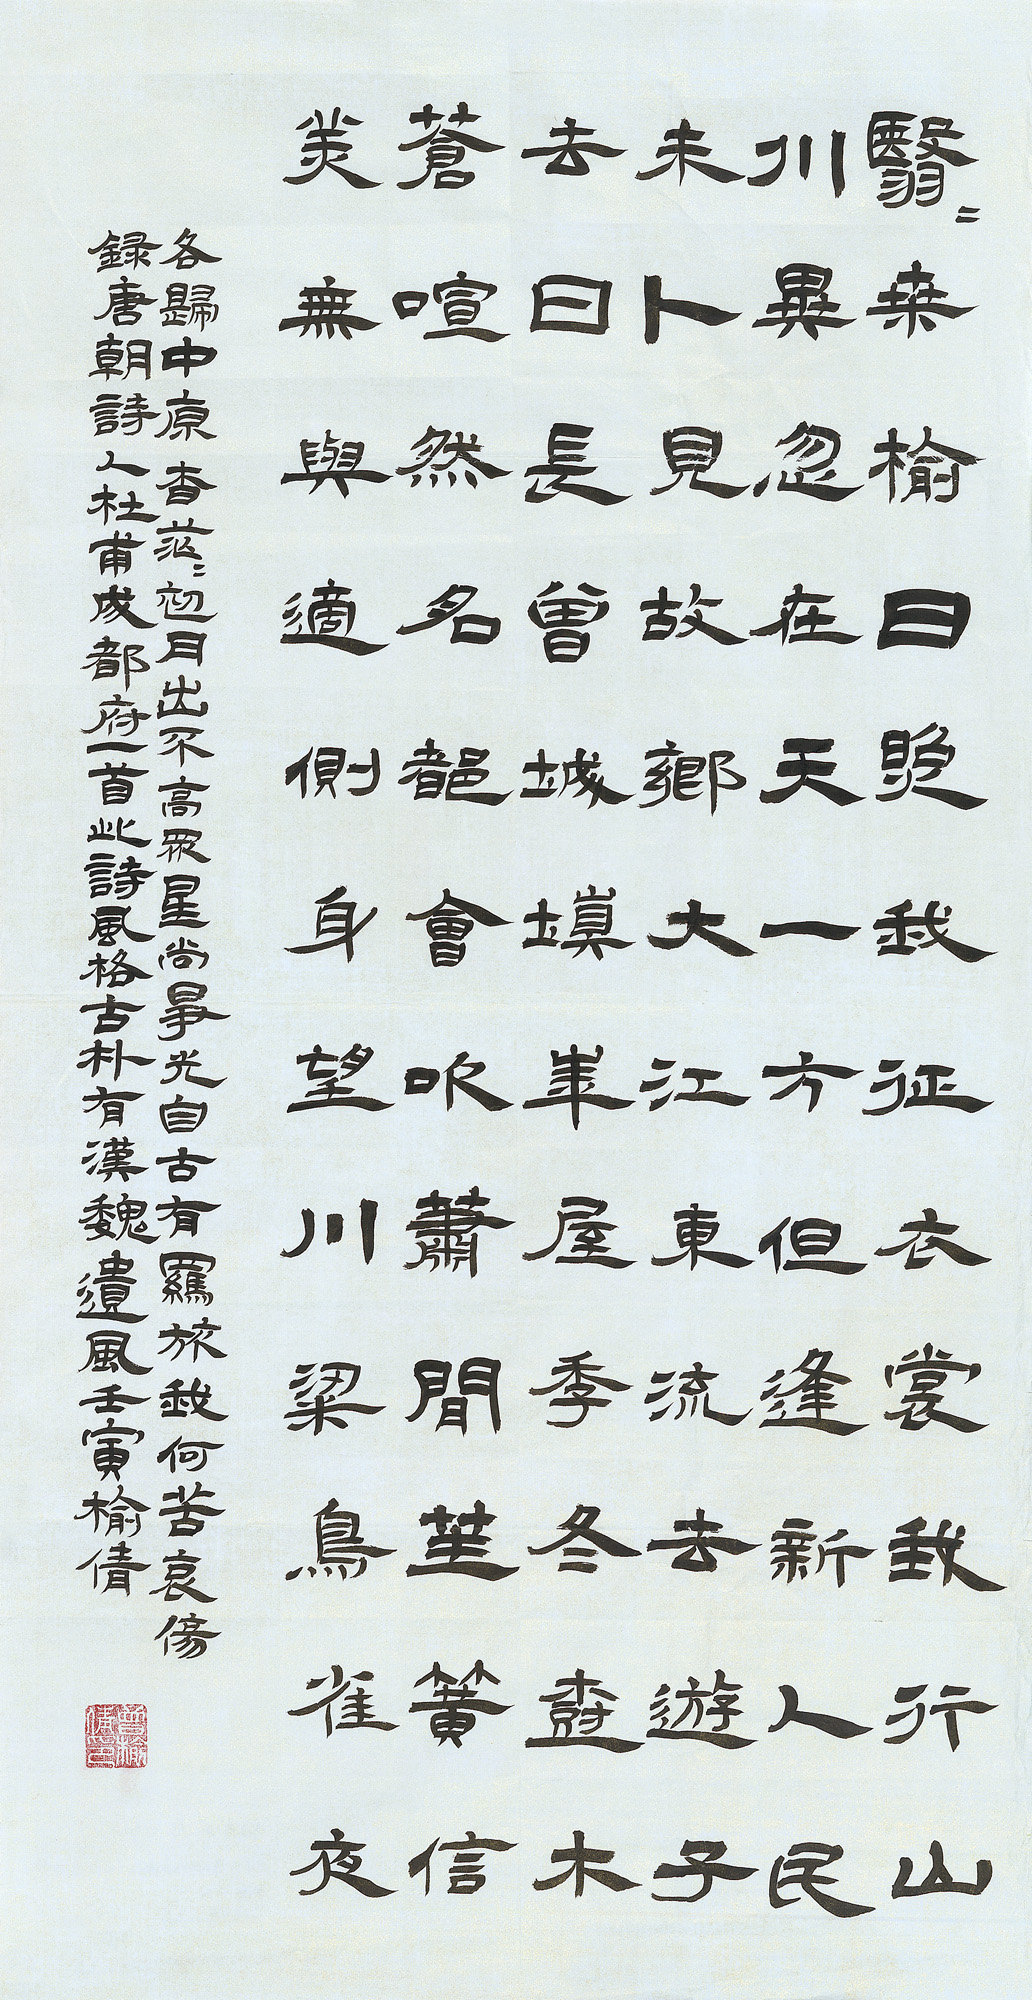 翳〻桒榆日照我征衣裳我行山
川異忽在天一方但逢新人民
未卜見故鄉大江東流去遊子
去日長曾城填華屋季冬樹木
蒼喧然名都會吹蕭間笙簧信
美無與適側身望川梁鳥雀夜
各歸中原杳茫〻初月出不高眾星尚爭光自古有羈旅我何苦哀傷
録唐朝詩人杜甫成都府一首此詩風格古朴有漢魏遺風壬寅榆倩